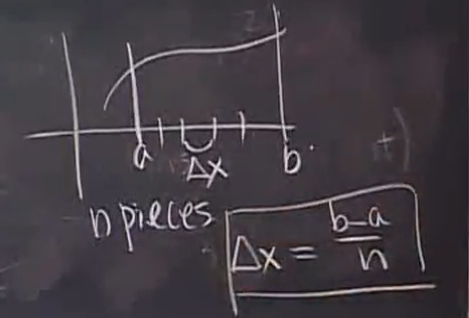 a b
Δx
n pieces
Δx = b-a / n